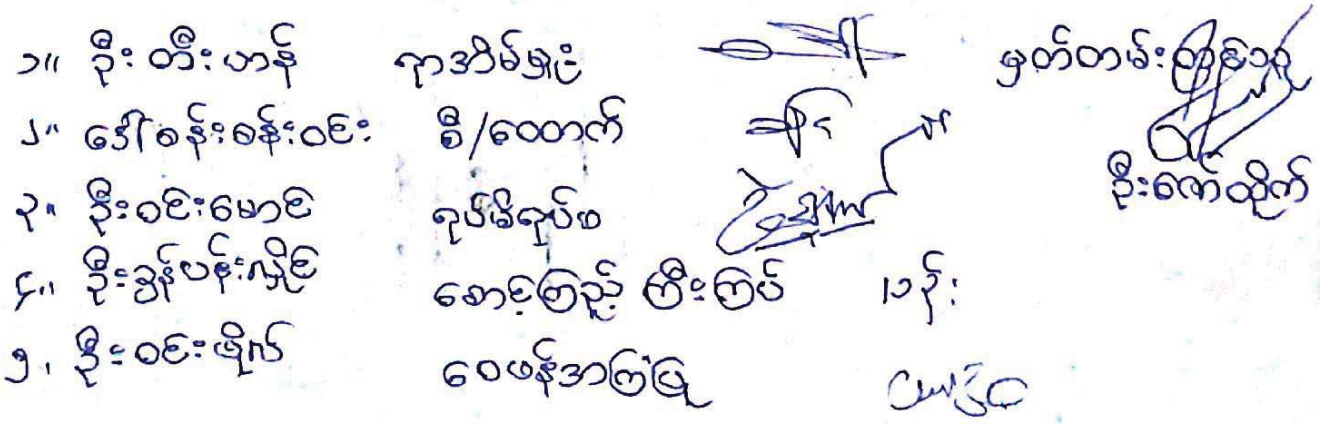 ၁။ ဦးတီးဟန် ရာအိမ်မှူး မှတ်တမ်းတွင်သူ
၂။ ဒေါ်စန်းစန်းဝင်း စီ/ထောက်
၃။ ဦးဝင်းမောင် ရပ်မိရပ်ဖ ဦးဇော်ထိုက်
၄။ ဦးခွန်ပန်းလှိုင် စောင့်ကြည့်ကြီးကြပ်
၅။ ဦးဝင်းဗိုလ် ဝေဖန်အကြံပြု